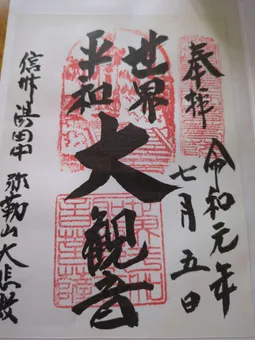 奉拝
令和元年
七月五日
世界
平和
大観音
信州湯田中
弥勒山大悲殿